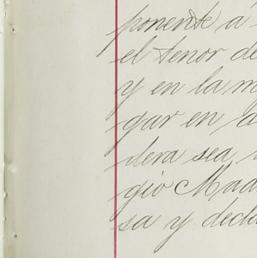 ponente á
el tenor de
y en la m
gar en
dera sea
gio Mad
sa y decl